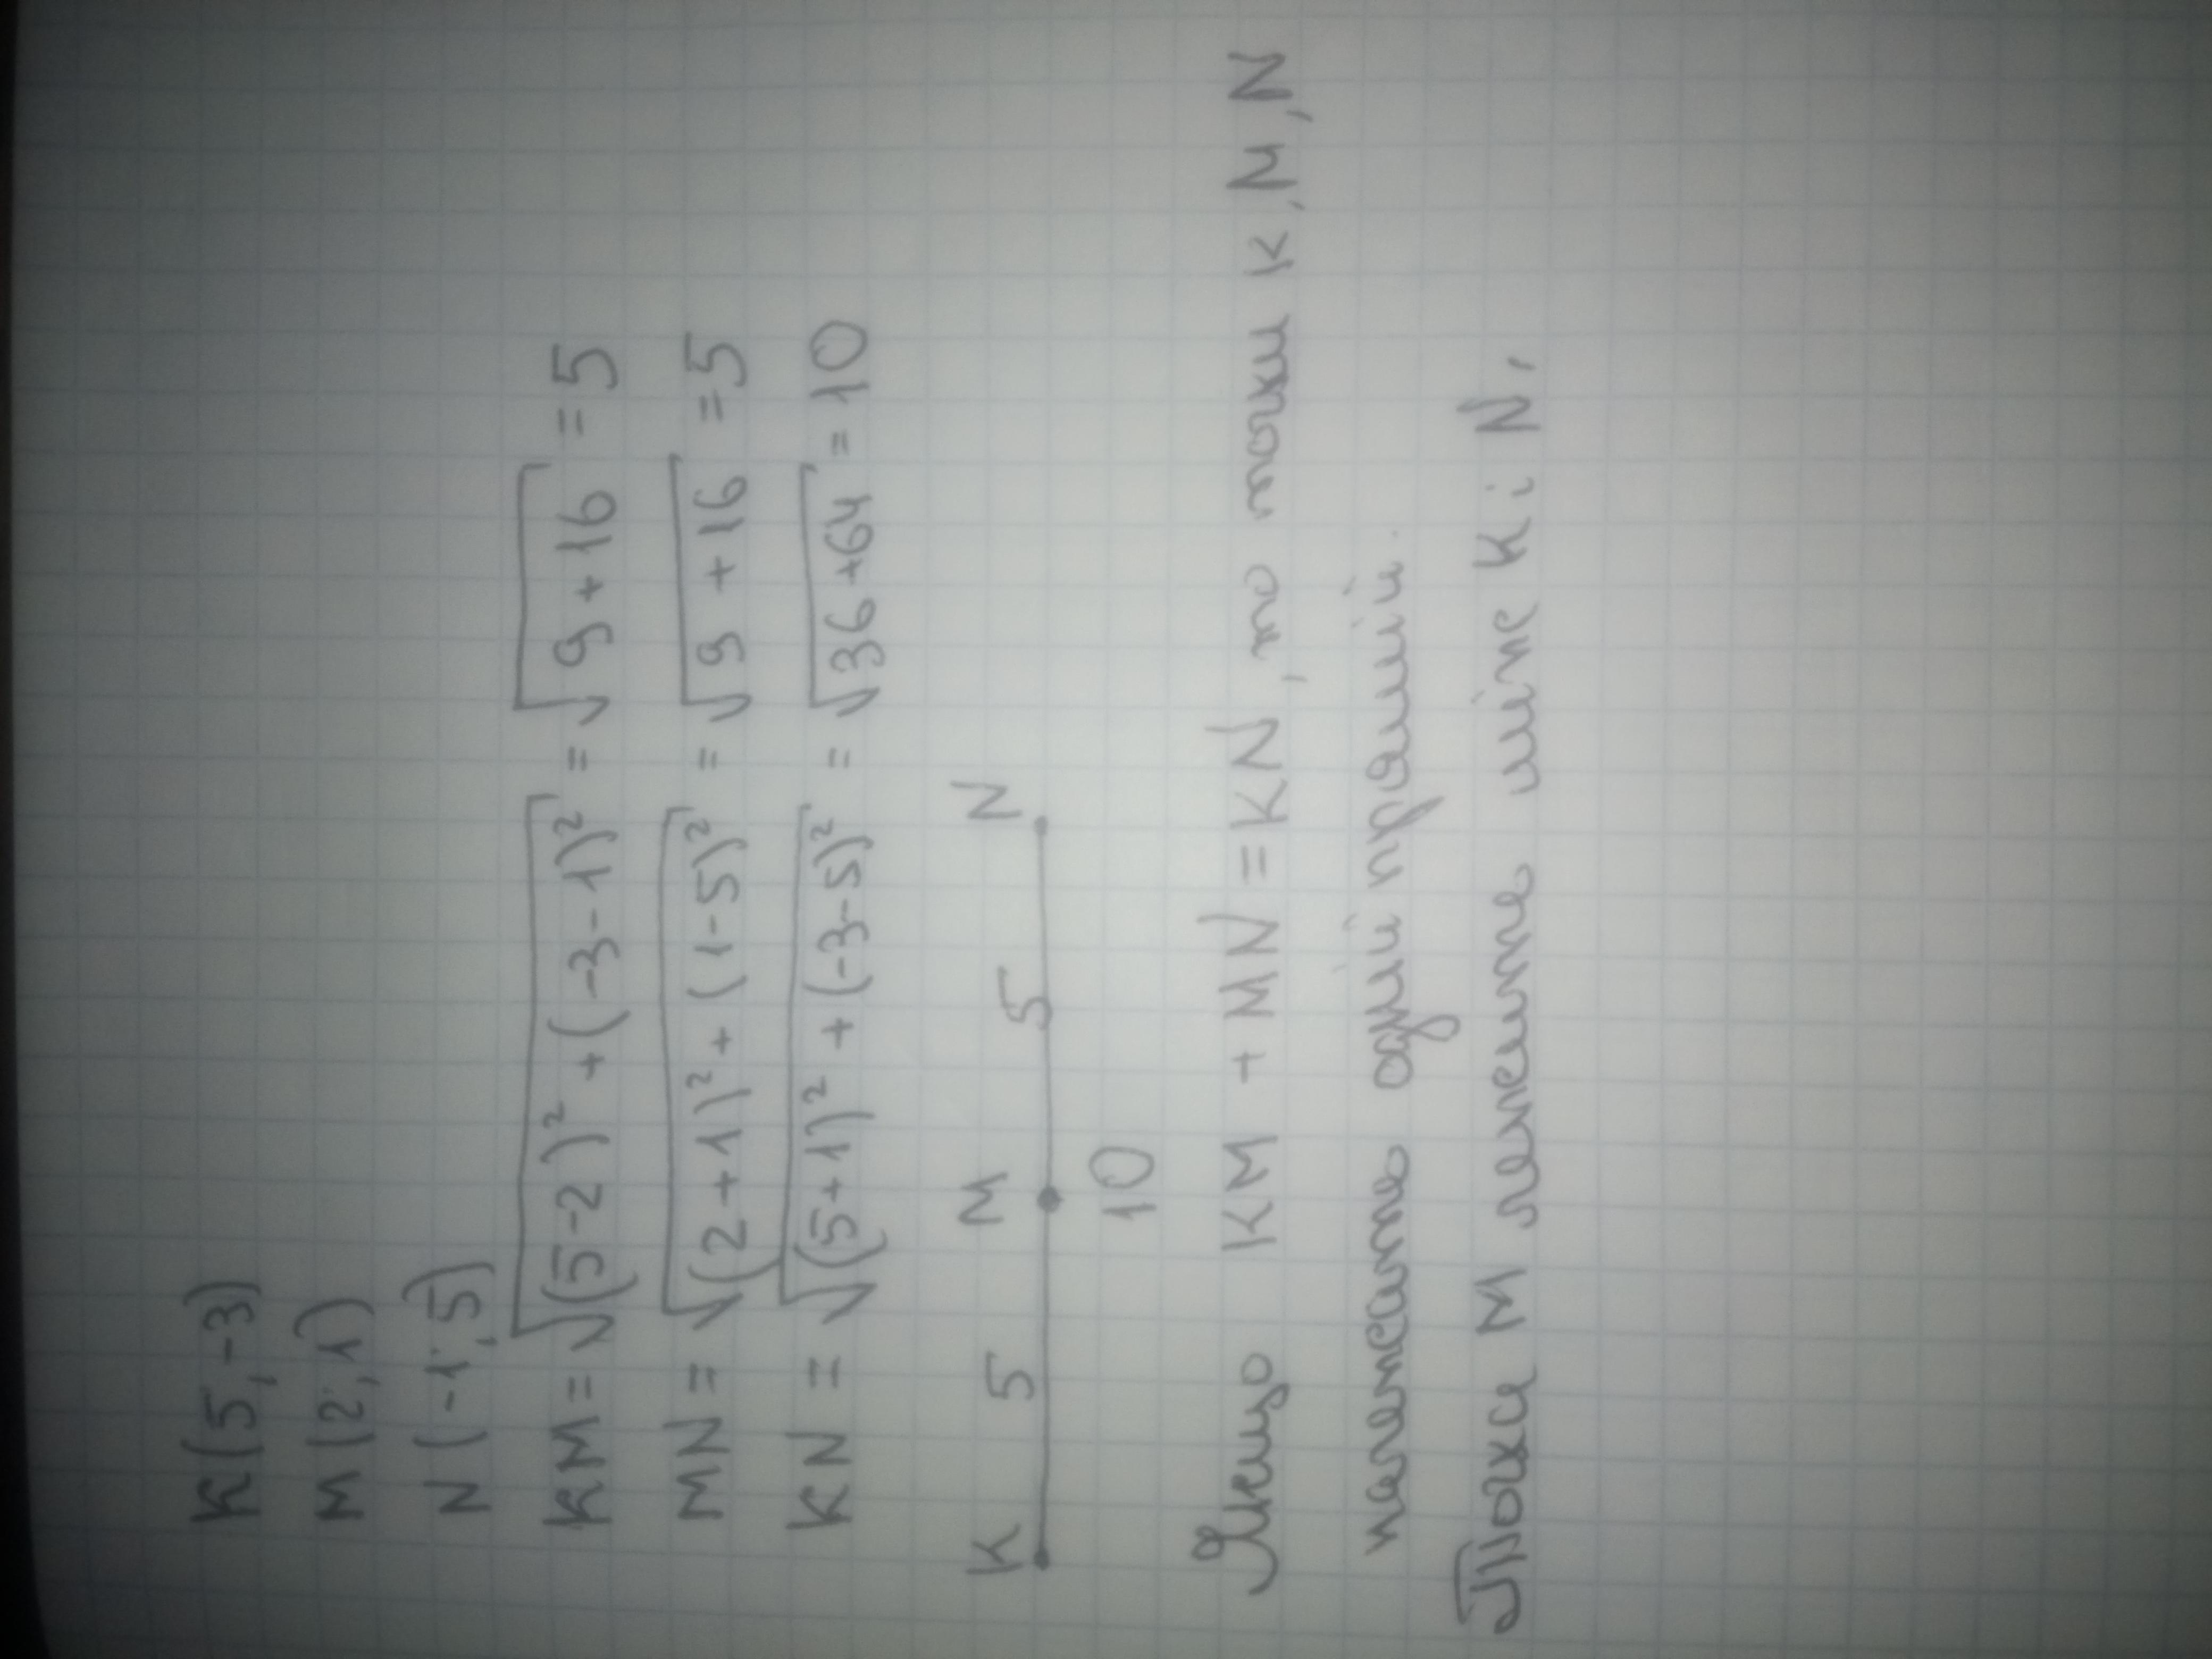 K(5;-3)
M(2;1)
N(-1;5)
KM = √(5-2)² + (-3-1)² = √9+16 = 5
MN = √(2+1)² + (1-5)² = √9+16 = 5
KN = √(5+1)² + (-3-5)² = √36+64 = 10
K 5 M 5 N
10
Якщо KM + MN = KN, то точки K, M, N
належать одній прямій.
Точка M лежить між K і N.